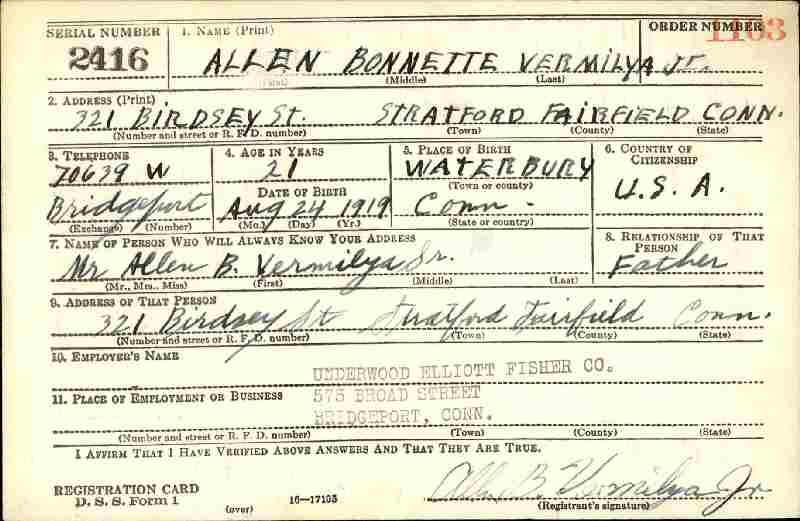 SERIAL NUMBER 1. NAME (Print) ORDER NUMBER
2416 ALLEN BONNETTE VERMILYA Jr. 1103
(First) (Middle) (Last)
2. ADDRESS (Print)
321 BIRDSEY St. STRATFORD FAIRFIELD CONN.
(Number and street or R. F. D. number) (Town) (County) (State)
3. TELEPHONE 4. AGE IN YEARS 5. PLACE OF BIRTH 6. COUNTRY OF CITIZENSHIP
70639 W 21 WATERBURY
DATE OF BIRTH (Town or county) U.S.A.
Bridgeport Aug 24 1919 Conn.
(Exchange) (Number) (Mo.) (Day) (Yr.) (State or country)
7. NAME OF PERSON WHO WILL ALWAYS KNOW YOUR ADDRESS 8. RELATIONSHIP OF THAT PERSON
Mr Allen B. Vermilya Sr. Father
(Mr., Mrs., Miss) (First) (Middle) (Last)
9. ADDRESS OF THAT PERSON
321 Birdsey St Stratford Fairfield Conn.
(Number and street or R. F. D. number) (Town) (County) (State)
10. EMPLOYER'S NAME
UNDERWOOD ELLIOTT FISHER CO.
11. PLACE OF EMPLOYMENT OR BUSINESS 575 BROAD STREET
BRIDGEPORT, CONN.
(Number and street or R. F. D. number) (Town) (County) (State)
I AFFIRM THAT I HAVE VERIFIED ABOVE ANSWERS AND THAT THEY ARE TRUE.
Allen B. Vermilya Jr
REGISTRATION CARD
D. S. S. Form 1 (over) 16-17105 (Registrant's signature)